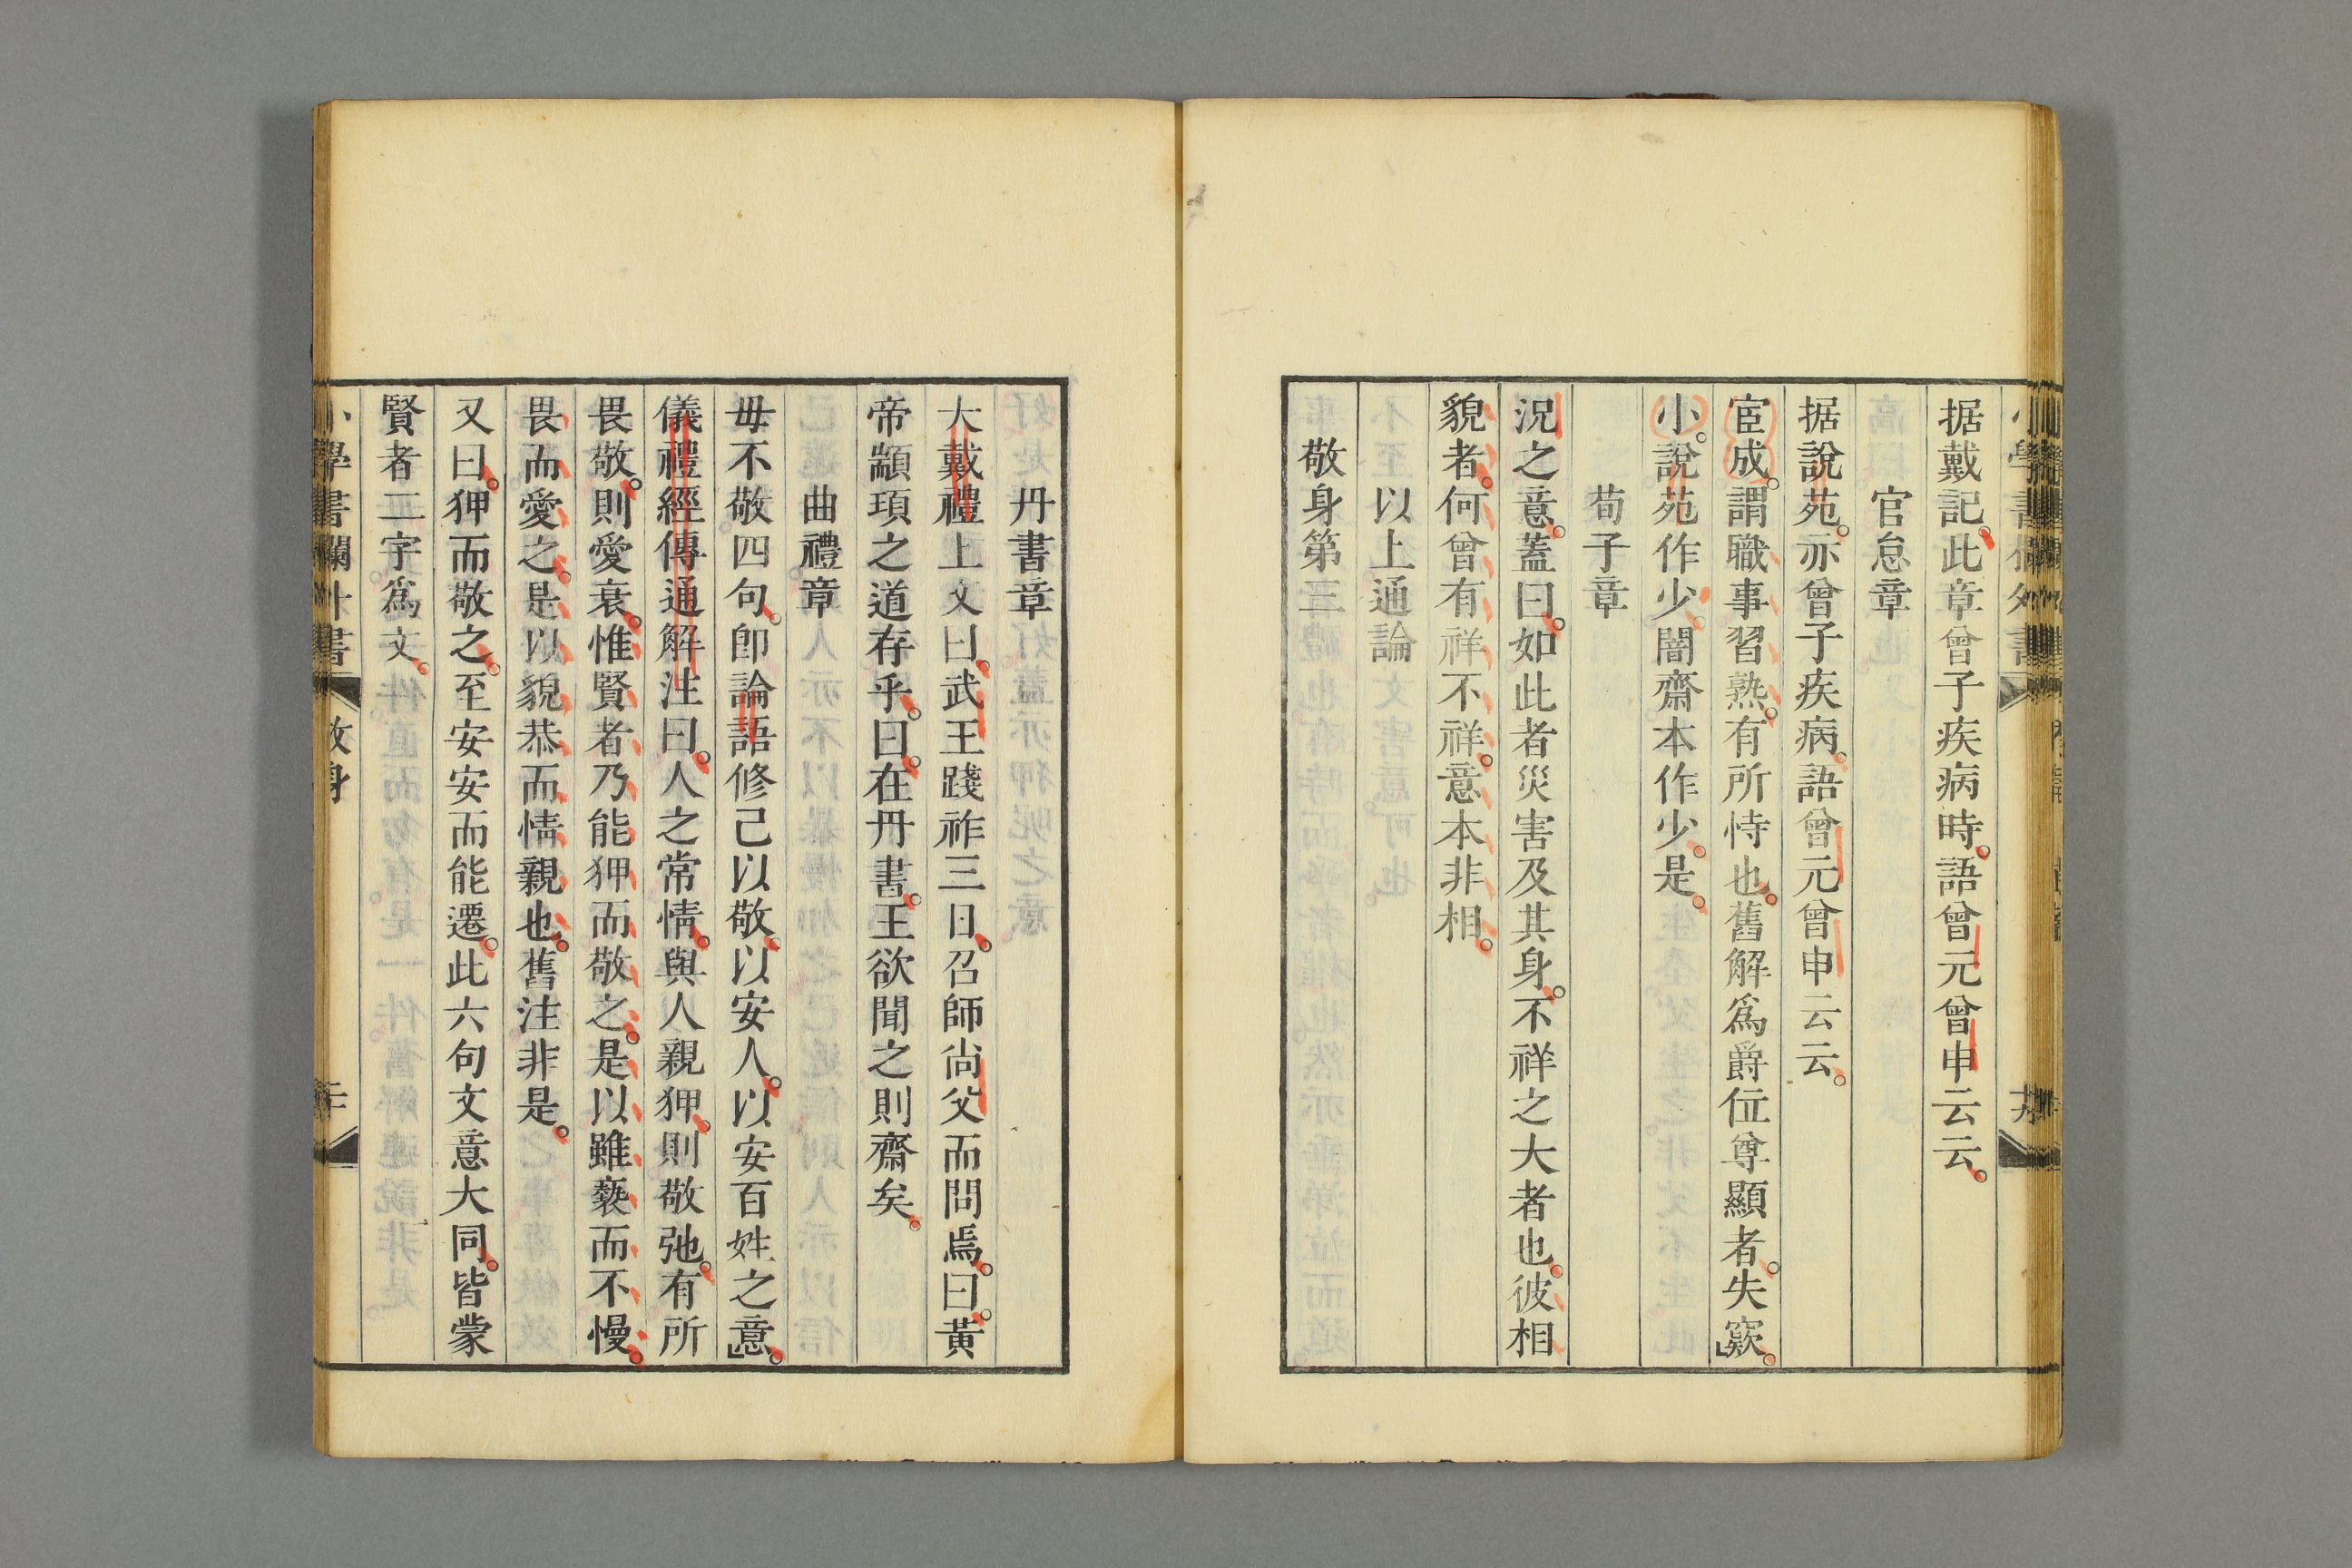 据戴記。此章曾子疾病時。語曾元曾申云云。
官怠章
据說苑。亦曾子疾病。語曾元曾申云云。
宦成。謂職事習熟。有所恃也。舊解爲爵位尊顯者。失窾。」
小。說苑作少。闇齋本作少。是。
荀子章
況之意。蓋曰。如此者災害及其身。不祥之大者也。彼相
貌者。何曾有祥不祥。意本非相。
以上通論
敬身第三
丹書章
大戴禮上文曰。武王踐祚三日。召師尙父而問焉。曰。黃
帝顓頊之道存乎。曰。在丹書。王欲聞之則齋矣。
曲禮章
毋不敬四句。卽論語修己以敬。以安人。以安百姓之意。」
儀禮經傳通解注曰。人之常情。與人親狎。則敬弛。有所
畏敬。則愛衰。惟賢者乃能狎而敬之。是以雖褻而不慢。
畏而愛之。是以貌恭而情親也。舊注非是。
又曰。狎而敬之。至安安而能遷。此六句文意大同。皆蒙
賢者二字爲文。
小學書欄外書
敬身